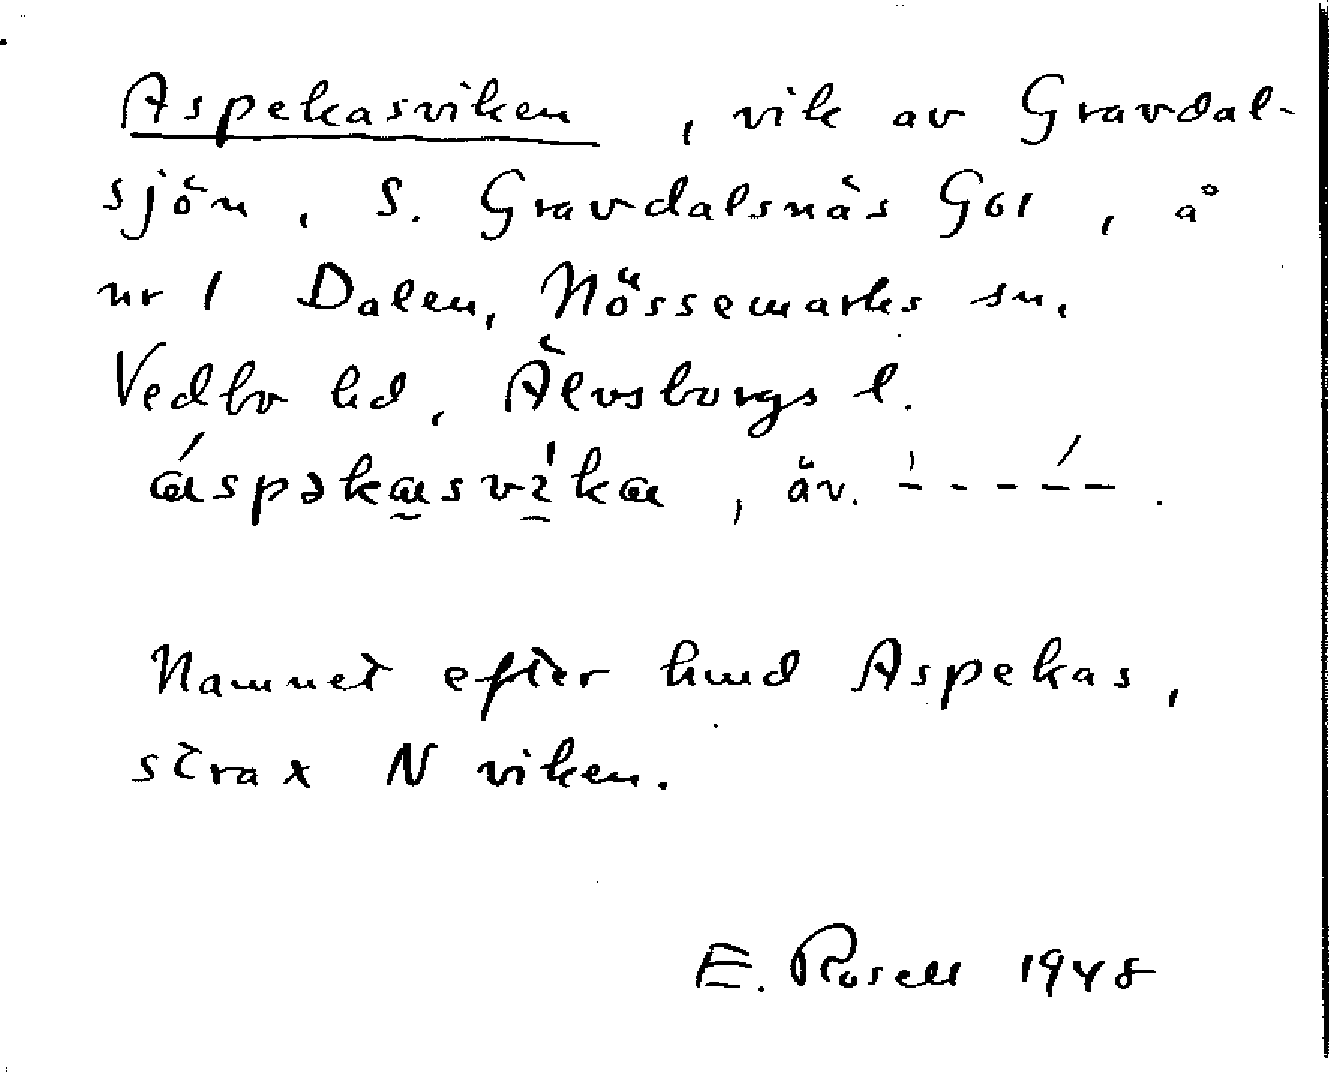 Aspekasviken, vik av Gravdal-
sjön, S. Gravdalsnäs G61, å
nr 1 Dalen, Nössemarks sn,
Vedbo hd, Älvsborgs l.
áspəkasvìka, äv. - - - - - .
Namnet efter hmd Aspekas,
strax N viken.
E. Rosell 1948